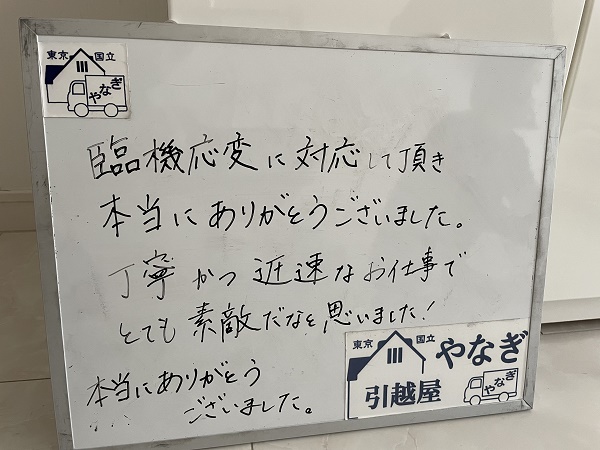 東京 国立
やなぎ
臨機応変に対応して頂き
本当にありがとうございました。
丁寧かつ迅速なお仕事で
とても素敵だなと思いました!
本当にありがとう
ございました。
東京 国立 やなぎ
引越屋
やなぎ